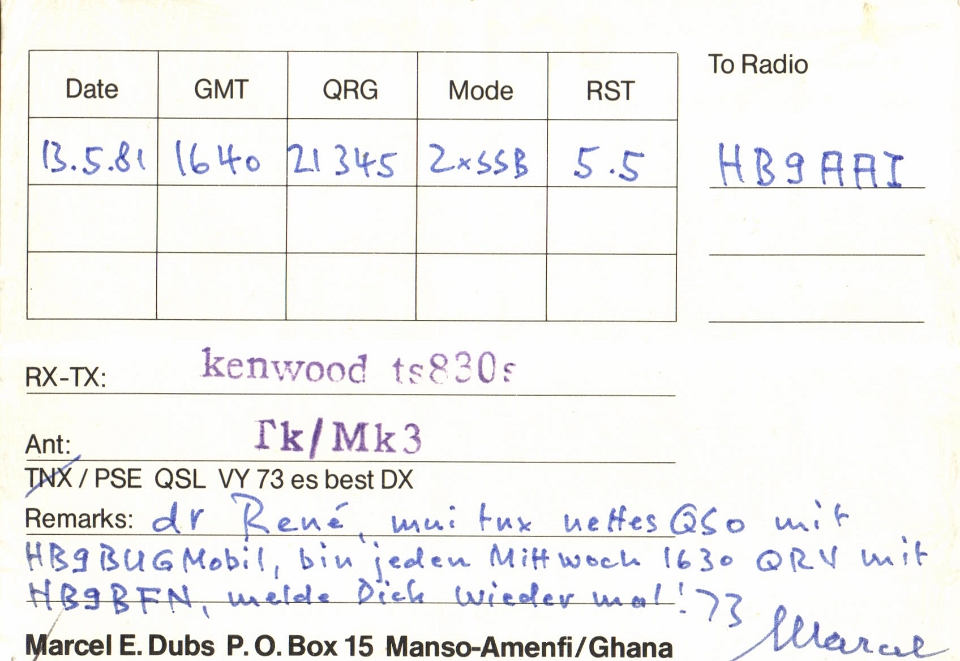 Date GMT QRG Mode RST
To Radio
13.5.81 1640 21345 2xSSB 5.5
HB9AAI
RX-TX: kenwood ts830s
Ant: Tk/Mk3
TNX / PSE QSL VY 73 es best DX
Remarks: dr René, mni tnx nettes QSO mit
HB9BUG Mobil, bin jeden Mittwoch 1630 QRV mit
HB9BFN, melde Dich wieder mal! 73
Marcel
Marcel E. Dubs P.O. Box 15 Manso-Amenfi/Ghana